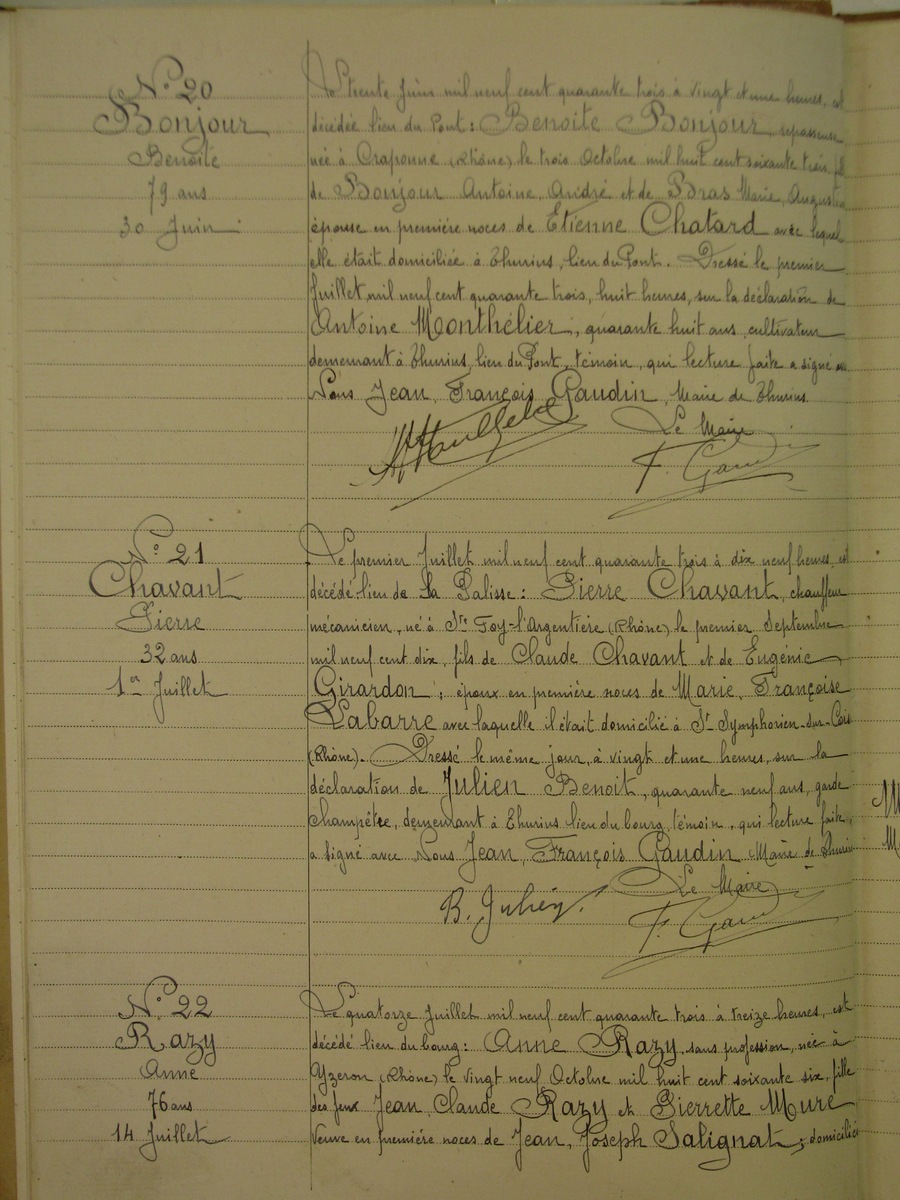 N° 20
Bonjour
Benoite
79 ans
30 Juin
Le trente Juin mil neuf cent quarante trois à vingt et une heures, est
décédée lieu du Pont : Benoite Bonjour, repasseuse
née à Craponne (Rhône) le trois Octobre mil huit cent soixante trois, fille
de Bonjour Antoine, André et de Bras Marie, Augustine
épouse en première noces de Etienne Chatard avec lequel
elle était domiciliée à Thurins, lieu du Pont. Dressé le premier
Juillet mil neuf cent quarante trois, huit heures, sur la déclaration de
Antoine Monthélier, quarante huit ans, cultivateur
demeurant à Thurins, lieu du Pont, témoin, qui lecture faite a signé avec
Nous Jean, François Gaudin, Maire de Thurins.
Le Maire
F. Gaud
N° 21
Chavant
Pierre
32 ans
1er Juillet
Le premier Juillet mil neuf cent quarante trois à dix neuf heures, est
décédé lieu de La Palisse : Pierre Chavant, chauffeur
mécanicien, né à Ste Foy-l'Argentière (Rhône) le premier Septembre
mil neuf cent dix, fils de Claude Chavant et de Eugénie
Girardon ; époux en première noces de Marie, Françoise
Labarre avec laquelle il était domicilié à St Symphorien-sur-Coise
(Rhône). Dressé le même jour, à vingt et une heures, sur la
déclaration de Julien Benoit, quarante neuf ans, garde
champêtre, demeurant à Thurins lieu du bourg, témoin, qui lecture faite,
a signé avec Nous Jean, François Gaudin Maire de Thurins
Le Maire
B. Julien
F. Gaud
N° 22
Razy
Anne
76 ans
14 Juillet
Le quatorze Juillet mil neuf cent quarante trois à treize heures, est
décédé lieu du bourg : Anne Razy, sans profession, née à
Yzeron (Rhône) le vingt neuf Octobre mil huit cent soixante six, fille
des feux Jean, Claude Razy et Pierrette Mure
Veuve en première noces de Jean, Joseph Salignat ; domiciliée